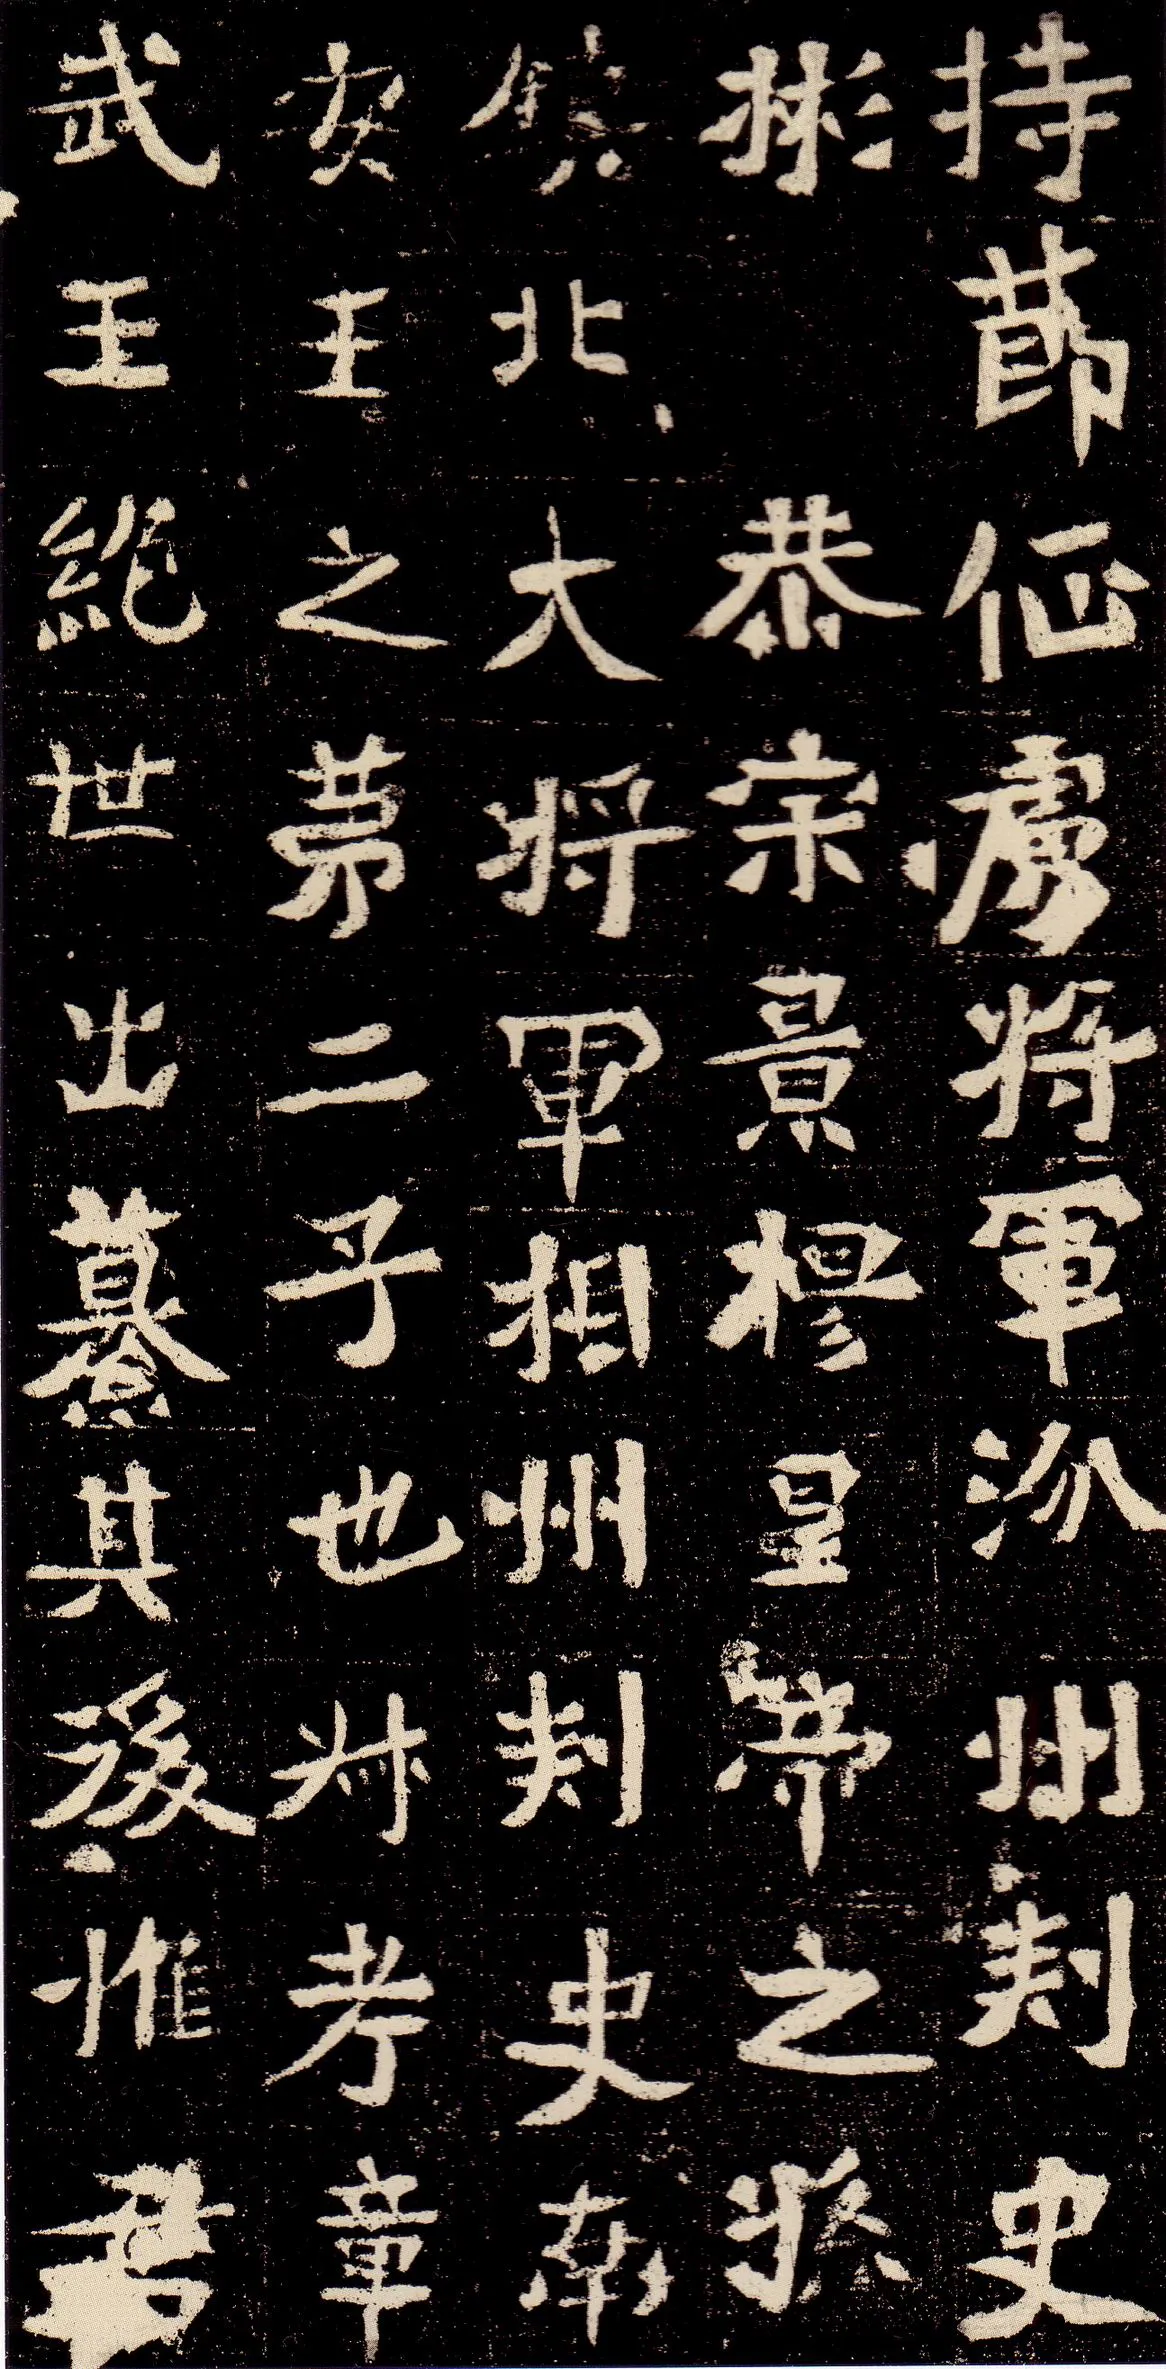 持莭征虜将軍汾州刺史
彬 恭宗景穆皇帝之孫
鎮北大将軍相州刺史南
安王之苐二子也叔考章
武王絕世出纂其後惟君